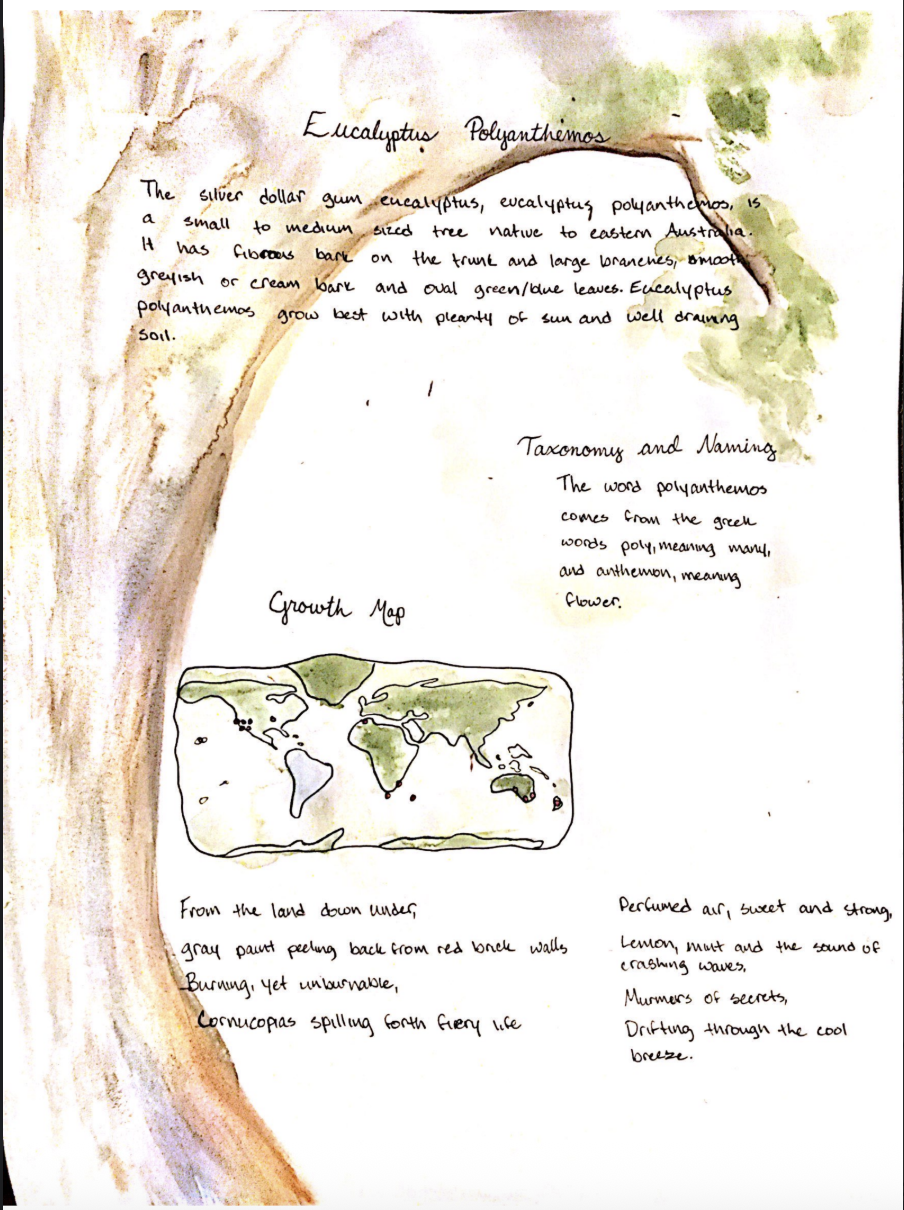 Eucalyptus Polyanthemos
The silver dollar gum eucalyptus, eucalyptus polyanthemos, is
a small to medium sized tree native to eastern Australia.
It has fibrous bark on the trunk and large branches, smooth
greyish or cream bark and oval green/blue leaves. Eucalyptus
polyanthemos grow best with pleanty of sun and well draining
soil.
Taxonomy and Naming
The word polyanthemos
comes from the greek
words poly, meaning many,
and anthemon, meaning
flower.
Growth Map
From the land down under,
gray paint peeling back from red brick walls
Burning, yet unburnable,
Cornucopias spilling forth fiery life
Perfumed air, sweet and strong,
Lemon, mint and the sound of
crashing waves,
Murmers of secrets,
Drifting through the cool
breeze.